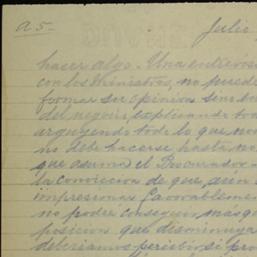 a 5. Julio
hacer algo. Una entrevis
con los ministros, no puede
formar su opinion sino
del negocio, explicando
arguyendo todo lo que
no debe hacerse hasta
que asuma el Procurador
la conviccion de que, aún
impresionar favorablemen
no podré conseguir mas que
posicion que disminuya
deberiamos percibir, si pro